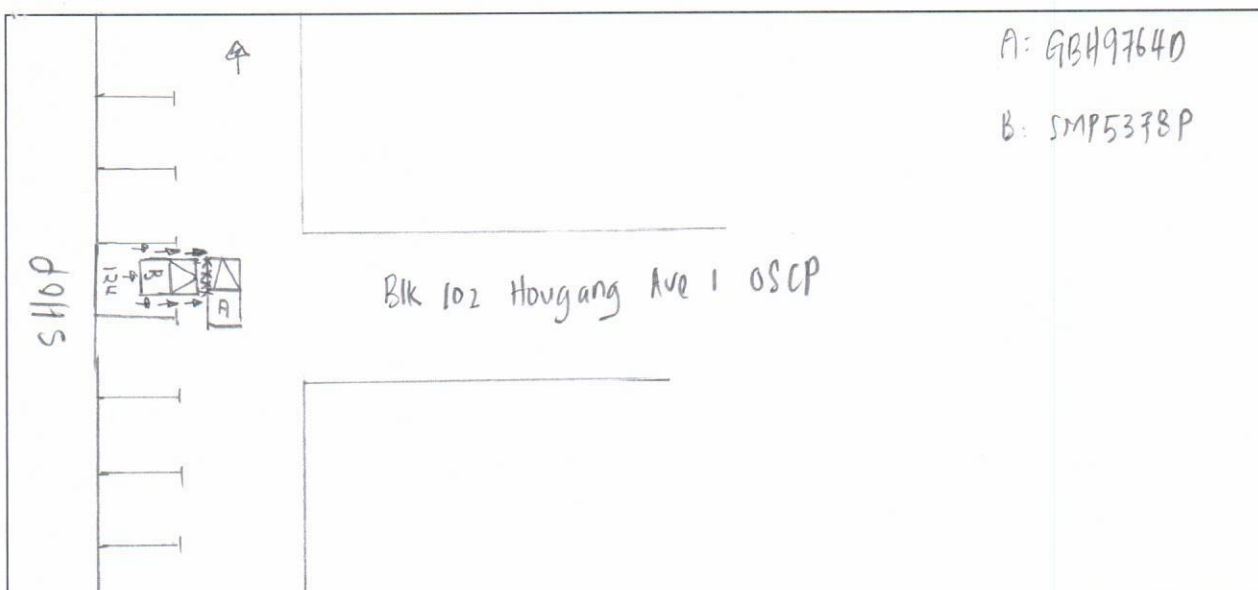 A: GBH9764D
B: SMP5378P
SHOP
124
B
A
Blk 102 Hougang Ave 1 OSCP